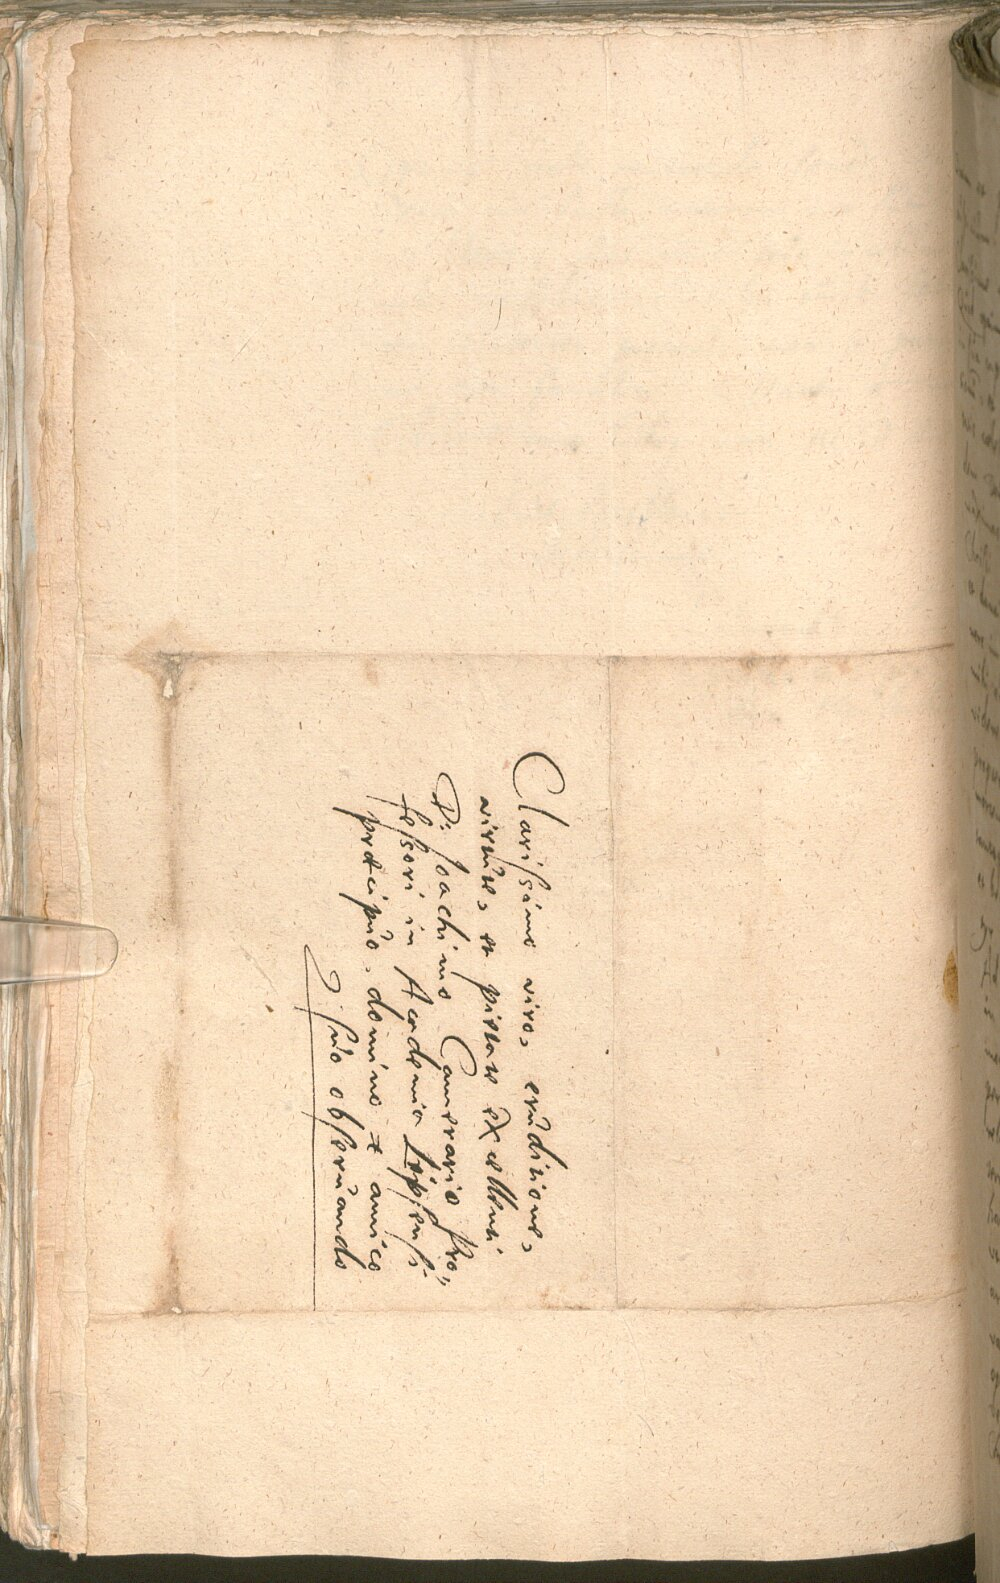 Clarissimo viro, eruditione,
virtute, et pietate excellenti
D: Joachimo Camerario Pro„
fessori in Academia Lipsensi
præcipuo, domino et amico
suo obseruando